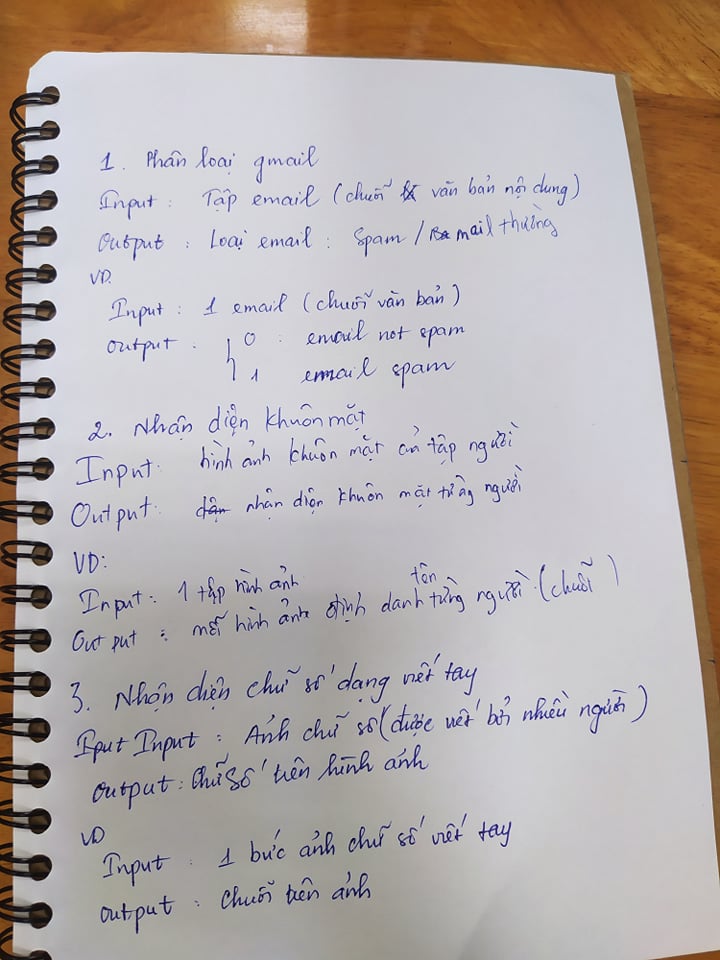 1. Phân loại gmail
Input : Tập email (chuỗi văn bản nội dung)
Output : Loại email : Spam / mail thường
VD.
Input : 1 email (chuỗi văn bản)
output : 0 : email not spam
1 email spam
2. Nhận diện khuôn mặt
Input: hình ảnh khuôn mặt của tập người
Output: nhận diện khuôn mặt từng người
VD:
Input : 1 tập hình ảnh
Output : mỗi hình ảnh định danh tên từng người (chuỗi)
3. Nhận diện chữ số dạng viết tay
Iput Input : Ảnh chữ số (được viết bởi nhiều người)
Output : Chữ số trên hình ảnh
VD
Input : 1 bức ảnh chữ số viết tay
output : Chuỗi trên ảnh